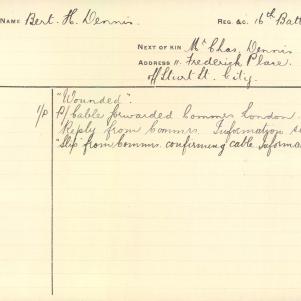 NAME Bert. H. Dennis. REG. &C. 16th Batt
NEXT OF KIN Mr Chas, Dennis
ADDRESS 11 Frederick Place.
off Sturt St. City.
"Wounded".
1/P P/Cable forwarded Commrs London
Reply from Commrs. Information
"Slip" from Commrs. confirming cable Informa